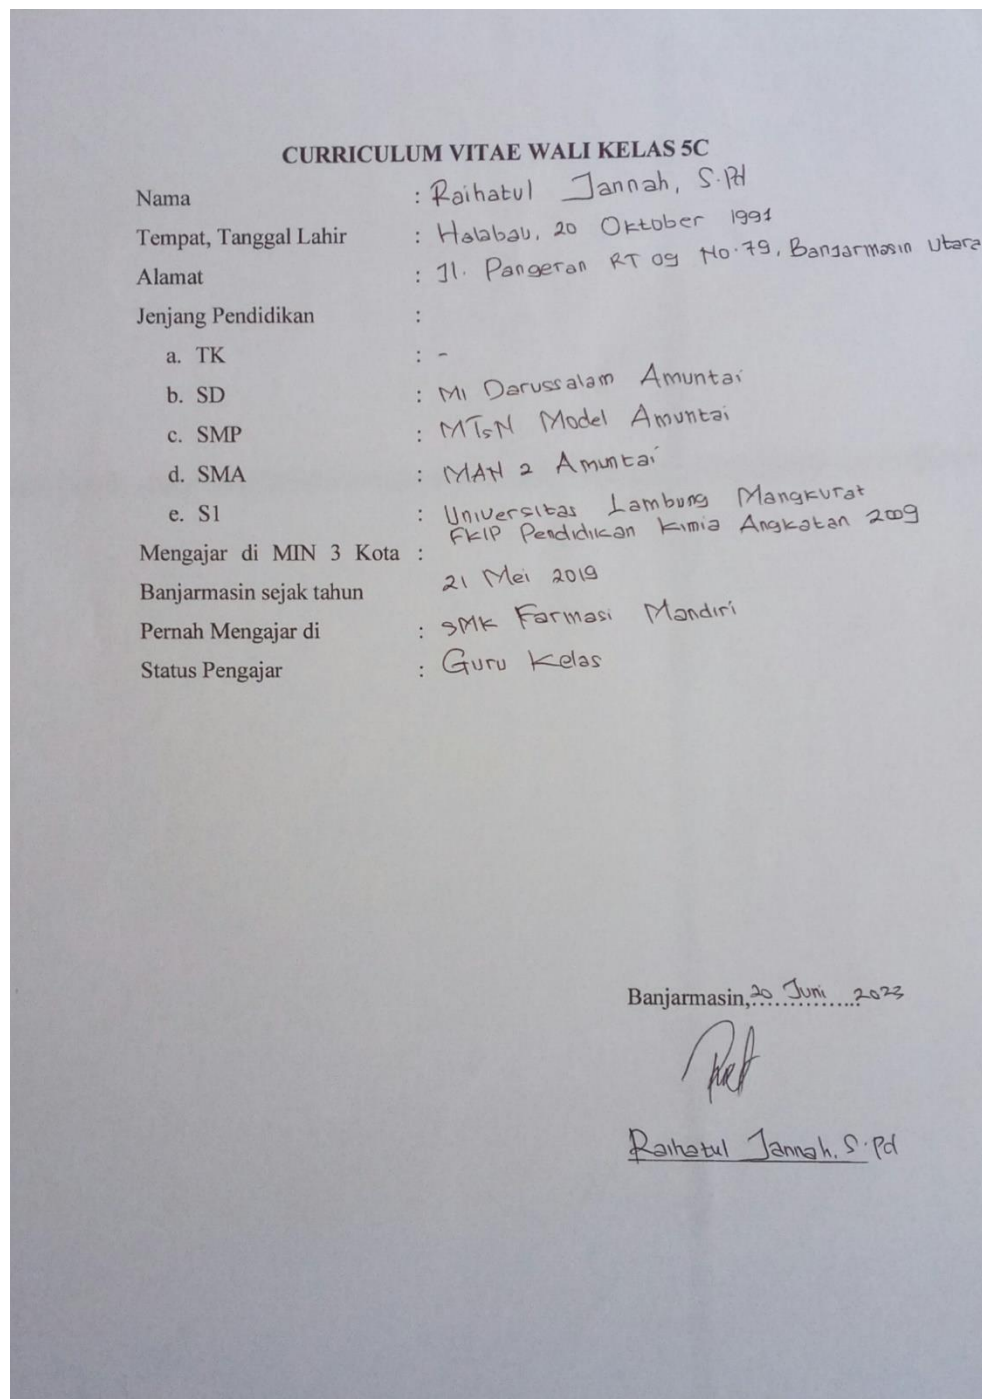 CURRICULUM VITAE WALI KELAS 5C
Nama : Raihatul Jannah, S.Pd
Tempat, Tanggal Lahir : Halabau, 20 Oktober 1991
Alamat : Jl. Pangeran RT 09 No.79, Banjarmasin Utara
Jenjang Pendidikan :
a. TK : -
b. SD : MI Darussalam Amuntai
c. SMP : MTsN Model Amuntai
d. SMA : MAN 2 Amuntai
e. S1 : Universitas Lambung Mangkurat
FKIP Pendidikan Kimia Angkatan 2009
Mengajar di MIN 3 Kota :
Banjarmasin sejak tahun 21 Mei 2019
Pernah Mengajar di : SMK Farmasi Mandiri
Status Pengajar : Guru Kelas
Banjarmasin, 20 Juni 2023
Raihatul Jannah, S.Pd